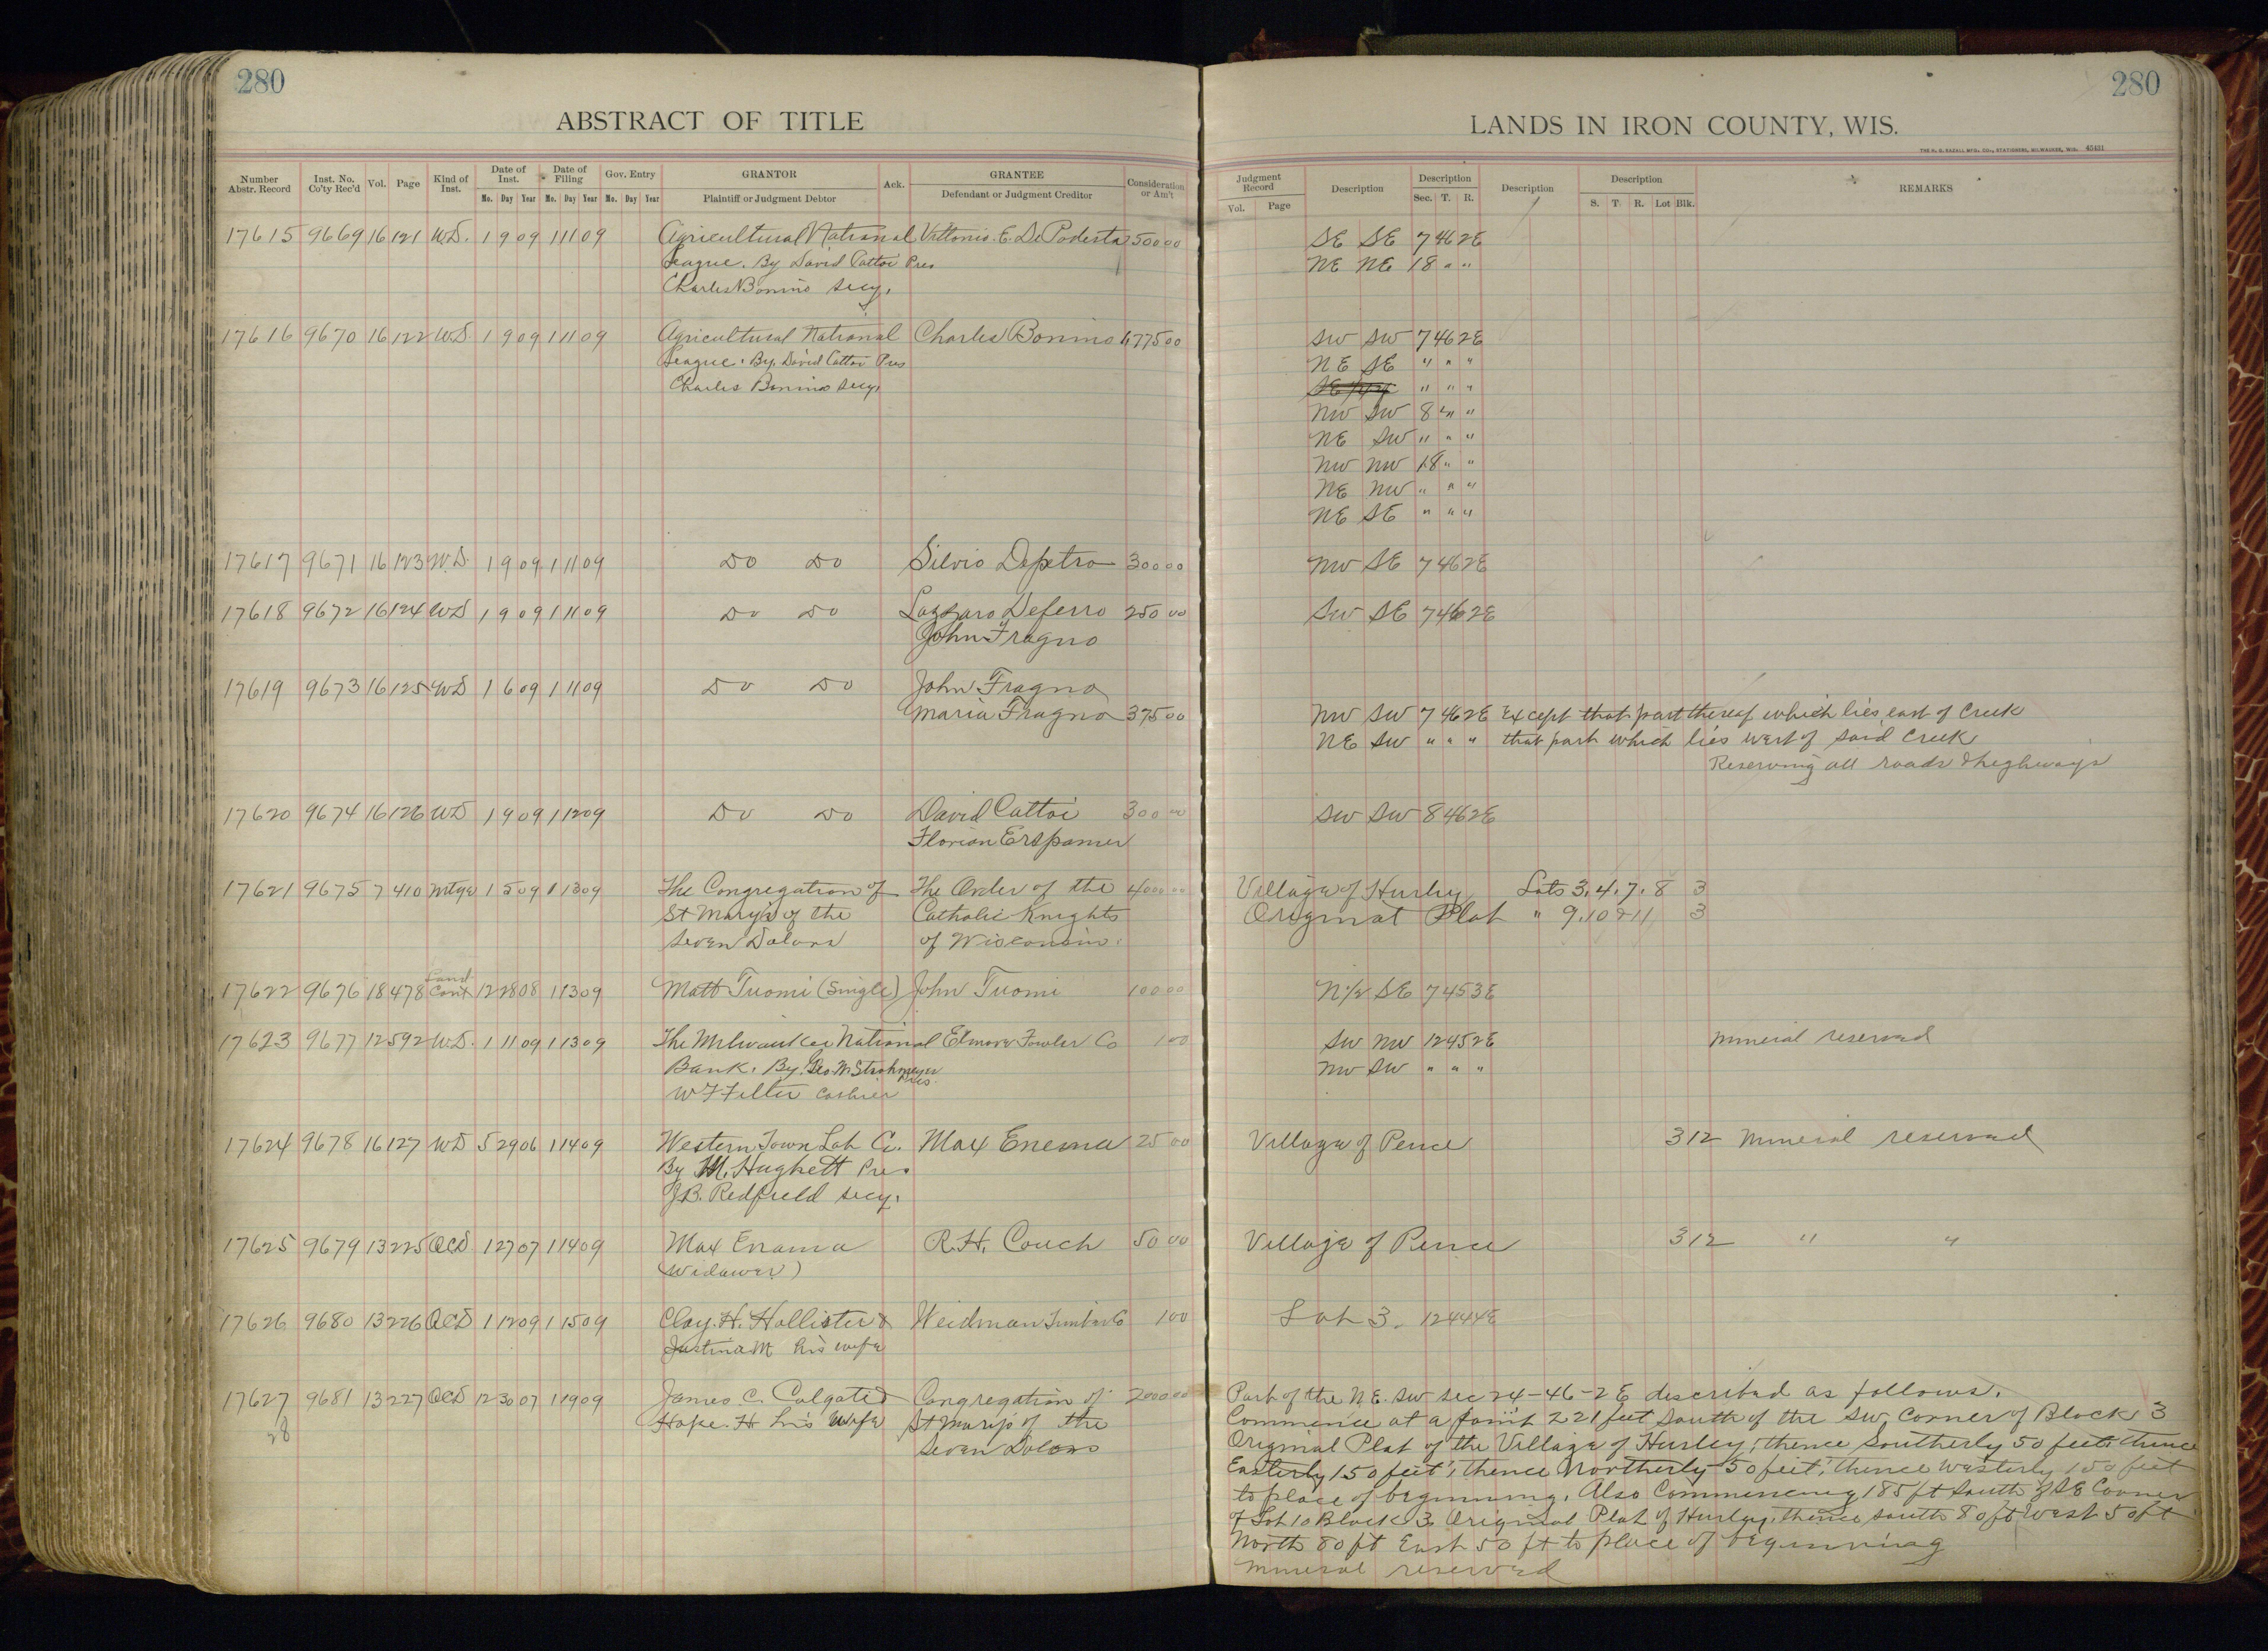 280
ABSTRACT OF TITLE
Number Abstr. Record
Inst. No. Co'ty Rec'd
Vol.
Page
Kind of Inst.
Date of Inst.
Date of Filing
Gov. Entry
GRANTOR
Ack.
GRANTEE
Consideration or Am't
Mo. Day Year Mo. Day Year Mo. Day Year
Plaintiff or Judgment Debtor
Defendant or Judgment Creditor
17615 9669 16 121 W.D. 1 9 09 1 11 09 Agricultural National Vattonis. E. De Podesta 500 00
League. By David Cattoi Pres
Charles Bonino Secy.
17616 9670 16 122 W.D. 1 9 09 1 11 09 Agricultural National Charles Bonino 1,775 00
League. By. David Cattoi Pres
Charles Bonino Secy.
17617 9671 16 123 W.D. 1 9 09 1 11 09 Do Do Silvio Depetro 300 00
17618 9672 16 124 WD 1 9 09 1 11 09 Do Do Lazzaro Deferro 250 00
John Fragno
17619 9673 16 125 WD 1 6 09 1 11 09 Do Do John Fragno
Maria Fragno 375 00
17620 9674 16 126 WD 1 9 09 1 12 09 Do Do David Cattoi 300 00
Florian Erspamer
17621 9675 7 410 Mtge 1 5 09 1 13 09 The Congregation of The Order of the 4000 00
St Mary's of the Catholic Knights
Seven Dolors of Wisconsin.
17622 9676 18 478 Land Cont 12 28 08 1 13 09 Matt Tuomi (Single) John Tuomi 100 00
17623 9677 12 592 W.D. 1 11 09 1 13 09 The Milwaukee National Elmore Fowler Co 1 00
Bank. By. Geo. W. Strohmeyer Pres.
W F Filter Cashier
17624 9678 16 127 WD 5 29 06 1 14 09 Western Town Lot Co. Max Enema 25 00
By M. Hughett Pres.
J.B. Redfield Secy.
17625 9679 13 225 QCD 1 27 07 1 14 09 Max Enama R.H. Couch 50 00
(Widower)
17626 9680 13 226 QCD 1 12 09 1 15 09 Clay. H. Hollister & Weidman Timber Co 1 00
Justina M his wife
17627 9681 13 227 QCD 12 30 07 1 19 09 James C. Colgate & Congregation of 2000 00
28 Hope. H his wife St Marys of the
Seven Dolors
280
LANDS IN IRON COUNTY, WIS.
Judgment Record
Description
Description
Description
Description
REMARKS
Vol. Page
Sec. T. R.
S. T. R. Lot Blk.
SE SE 7 46 2E
NE NE 18 " "
SW SW 7 46 2E
NE SE " " "
" " "
NW SW 8 " "
NE SW " " "
NW NW 18 " "
NE NW " " "
NE SE " " "
NW SE 7 46 2E
SW SE 7 46 2E
NW SW 7 46 2E Except that part thereof which lies east of Creek
NE SW " " " that part which lies west of said Creek
Reserving all roads & highways
SW SW 8 46 2E
Village of Hurley Lots 3. 4. 7. 8 3
Original Plat " 9. 10 & 11 3
N 1/2 SE 7 45 3E
SW NW 12 45 2E Mineral reserved
NW SW " " "
Village of Pence 3 12 Mineral reserved
Village of Pence 3 12 " "
Lot 3. 12 44 4E
Part of the NE. SW Sec 24-46-2E described as follows.
Commence at a point 221 feet South of the SW Corner of Block 3
Original Plat of the Village of Hurley; thence Southerly 50 feet; thence
Easterly 150 feet; thence Northerly 50 feet; thence Westerly 150 feet
to place of beginning. Also Commencing 185 ft South of SE Corner
of Lot 10 Block 3 Original Plat of Hurley, thence South 80 ft West 50 ft
North 80 ft East 50 ft to place of beginning
Mineral reserved